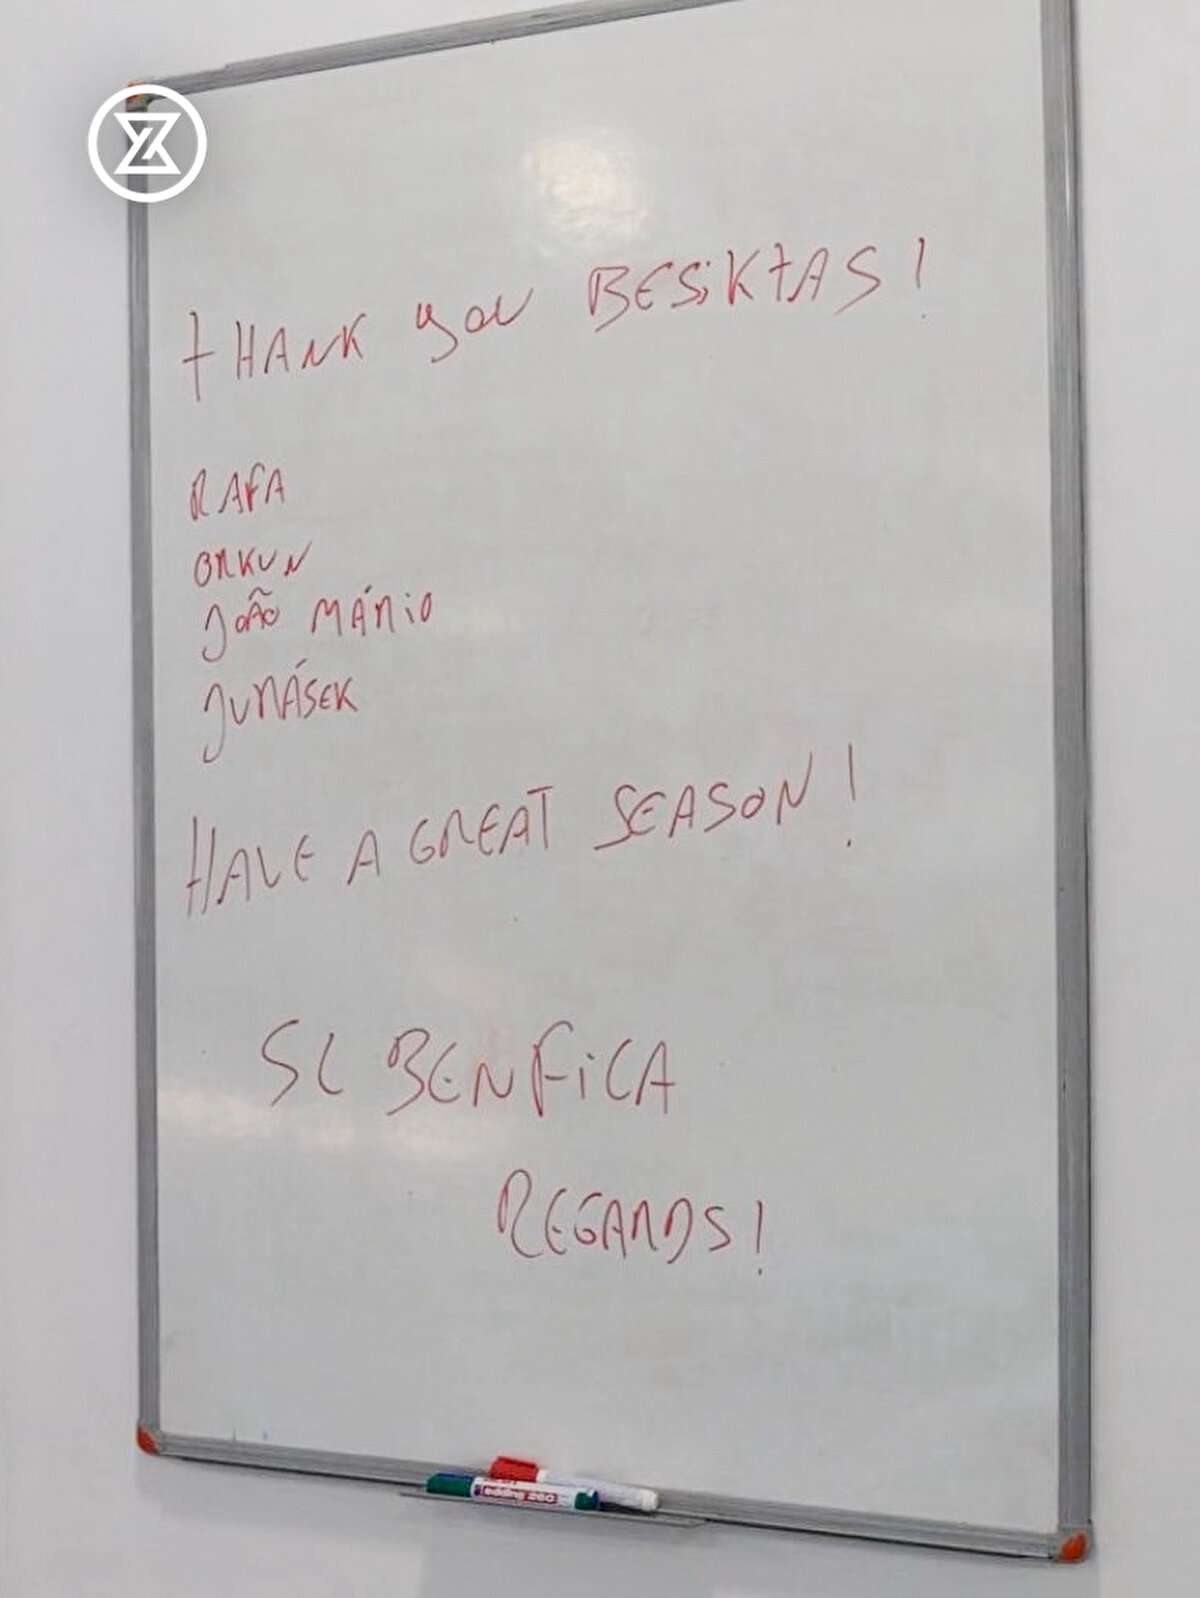 tHANK you BESiKtAS!
RAFA
ORKUN
João MÁRiO
JURÁSEK
HAVE A GREAT SEASON!
SL BENFiCA
REGARDS!